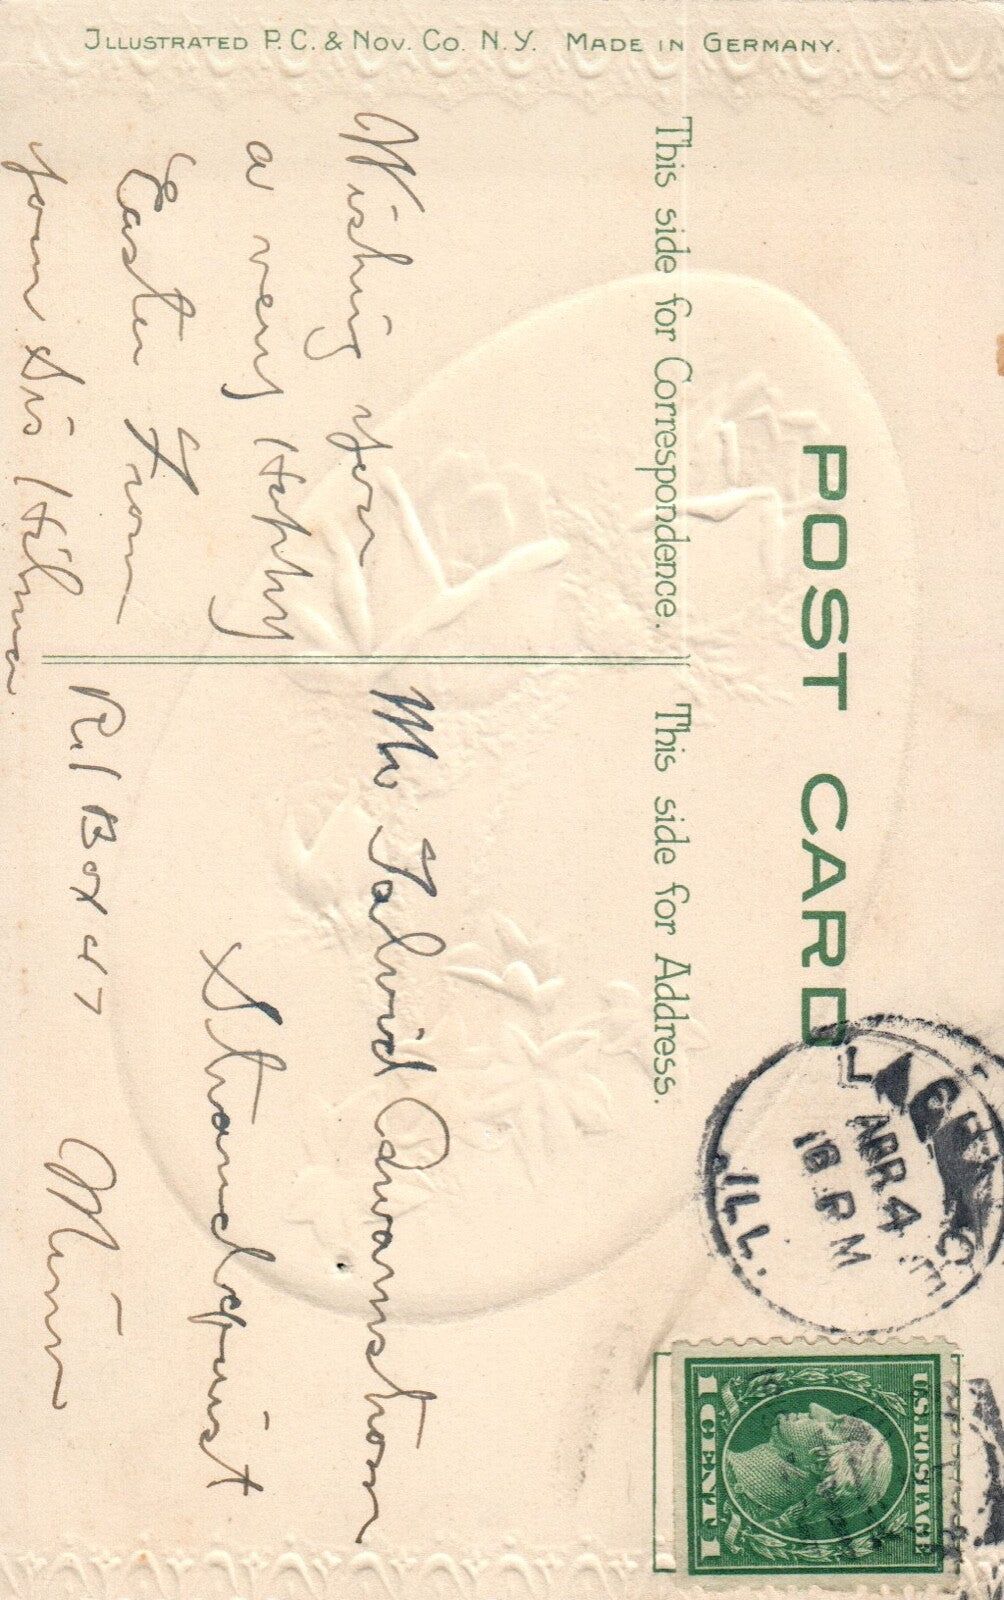 ILLUSTRATED P.C. & NOV. CO. N.Y. MADE IN GERMANY.
POST CARD
This side for Correspondence.
This side for Address.
Wishing you
a very Happy
Easter From
your Sis Hilma
Mr Tolvid Edwanstrom
Strandquist
R.1 Box 47 Minn
APR 4
PM
ILL.
U.S. POSTAGE
1 CENT 1